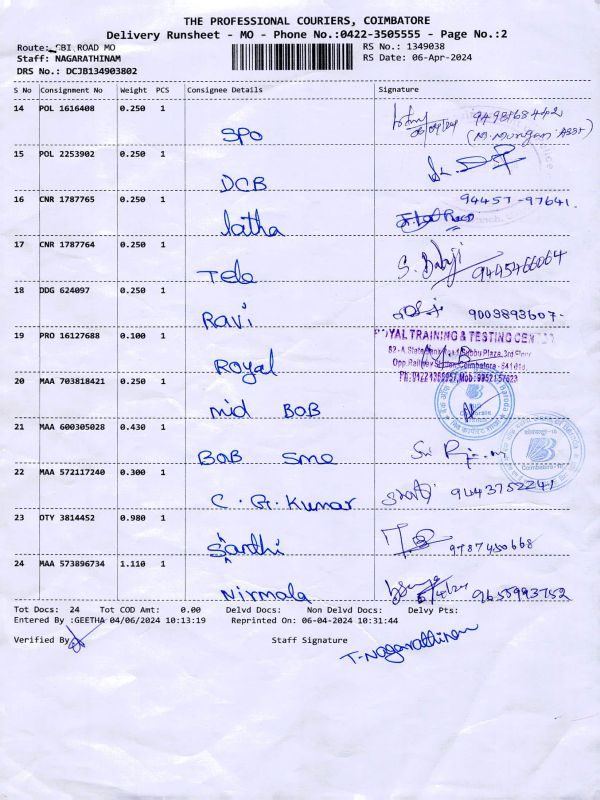 THE PROFESSIONAL COURIERS, COIMBATORE
Delivery Runsheet - MO - Phone No.:0422-3505555 - Page No.:2
Route: CBI ROAD MO
RS No.: 1349038
Staff: NAGARATHINAM
RS Date: 06-Apr-2024
DRS No.: DCJB134903802
S No Consignment No Weight PCS Consignee Details Signature
14 POL 1616408 0.250 1
SPO
9498168442
06/04/24 (M. Murugan ASST)
15 POL 2253902 0.250 1
DCB
16 CNR 1787765 0.250 1
94457-97641.
latha
17 CNR 1787764 0.250 1
Tele
S. Balaji 9445466064
18 DDG 624097 0.250 1
Ravi
9003893607-
19 PRO 16127688 0.100 1
Royal
ROYAL TRAINING & TESTING CENTRE
82-A State Bank Road, Subbu Plaza, 3rd Floor
Opp. Railway Station, Coimbatore - 641 018.
20 MAA 703818421 0.250 1
mid BOB
21 MAA 600305028 0.430 1
BOB sme
22 MAA 572117240 0.300 1
C. G. Kumar
9643752241
23 OTY 3814452 0.980 1
Santhi
9787450668
24 MAA 573896734 1.110 1
Nirmala
5/4/24 9655993752
Tot Docs: 24 Tot COD Amt: 0.00 Delvd Docs: Non Delvd Docs: Delvy Pts:
Entered By :GEETHA 04/06/2024 10:13:19 Reprinted On: 06-04-2024 10:31:44
Verified By
Staff Signature
T. Nagarathinam